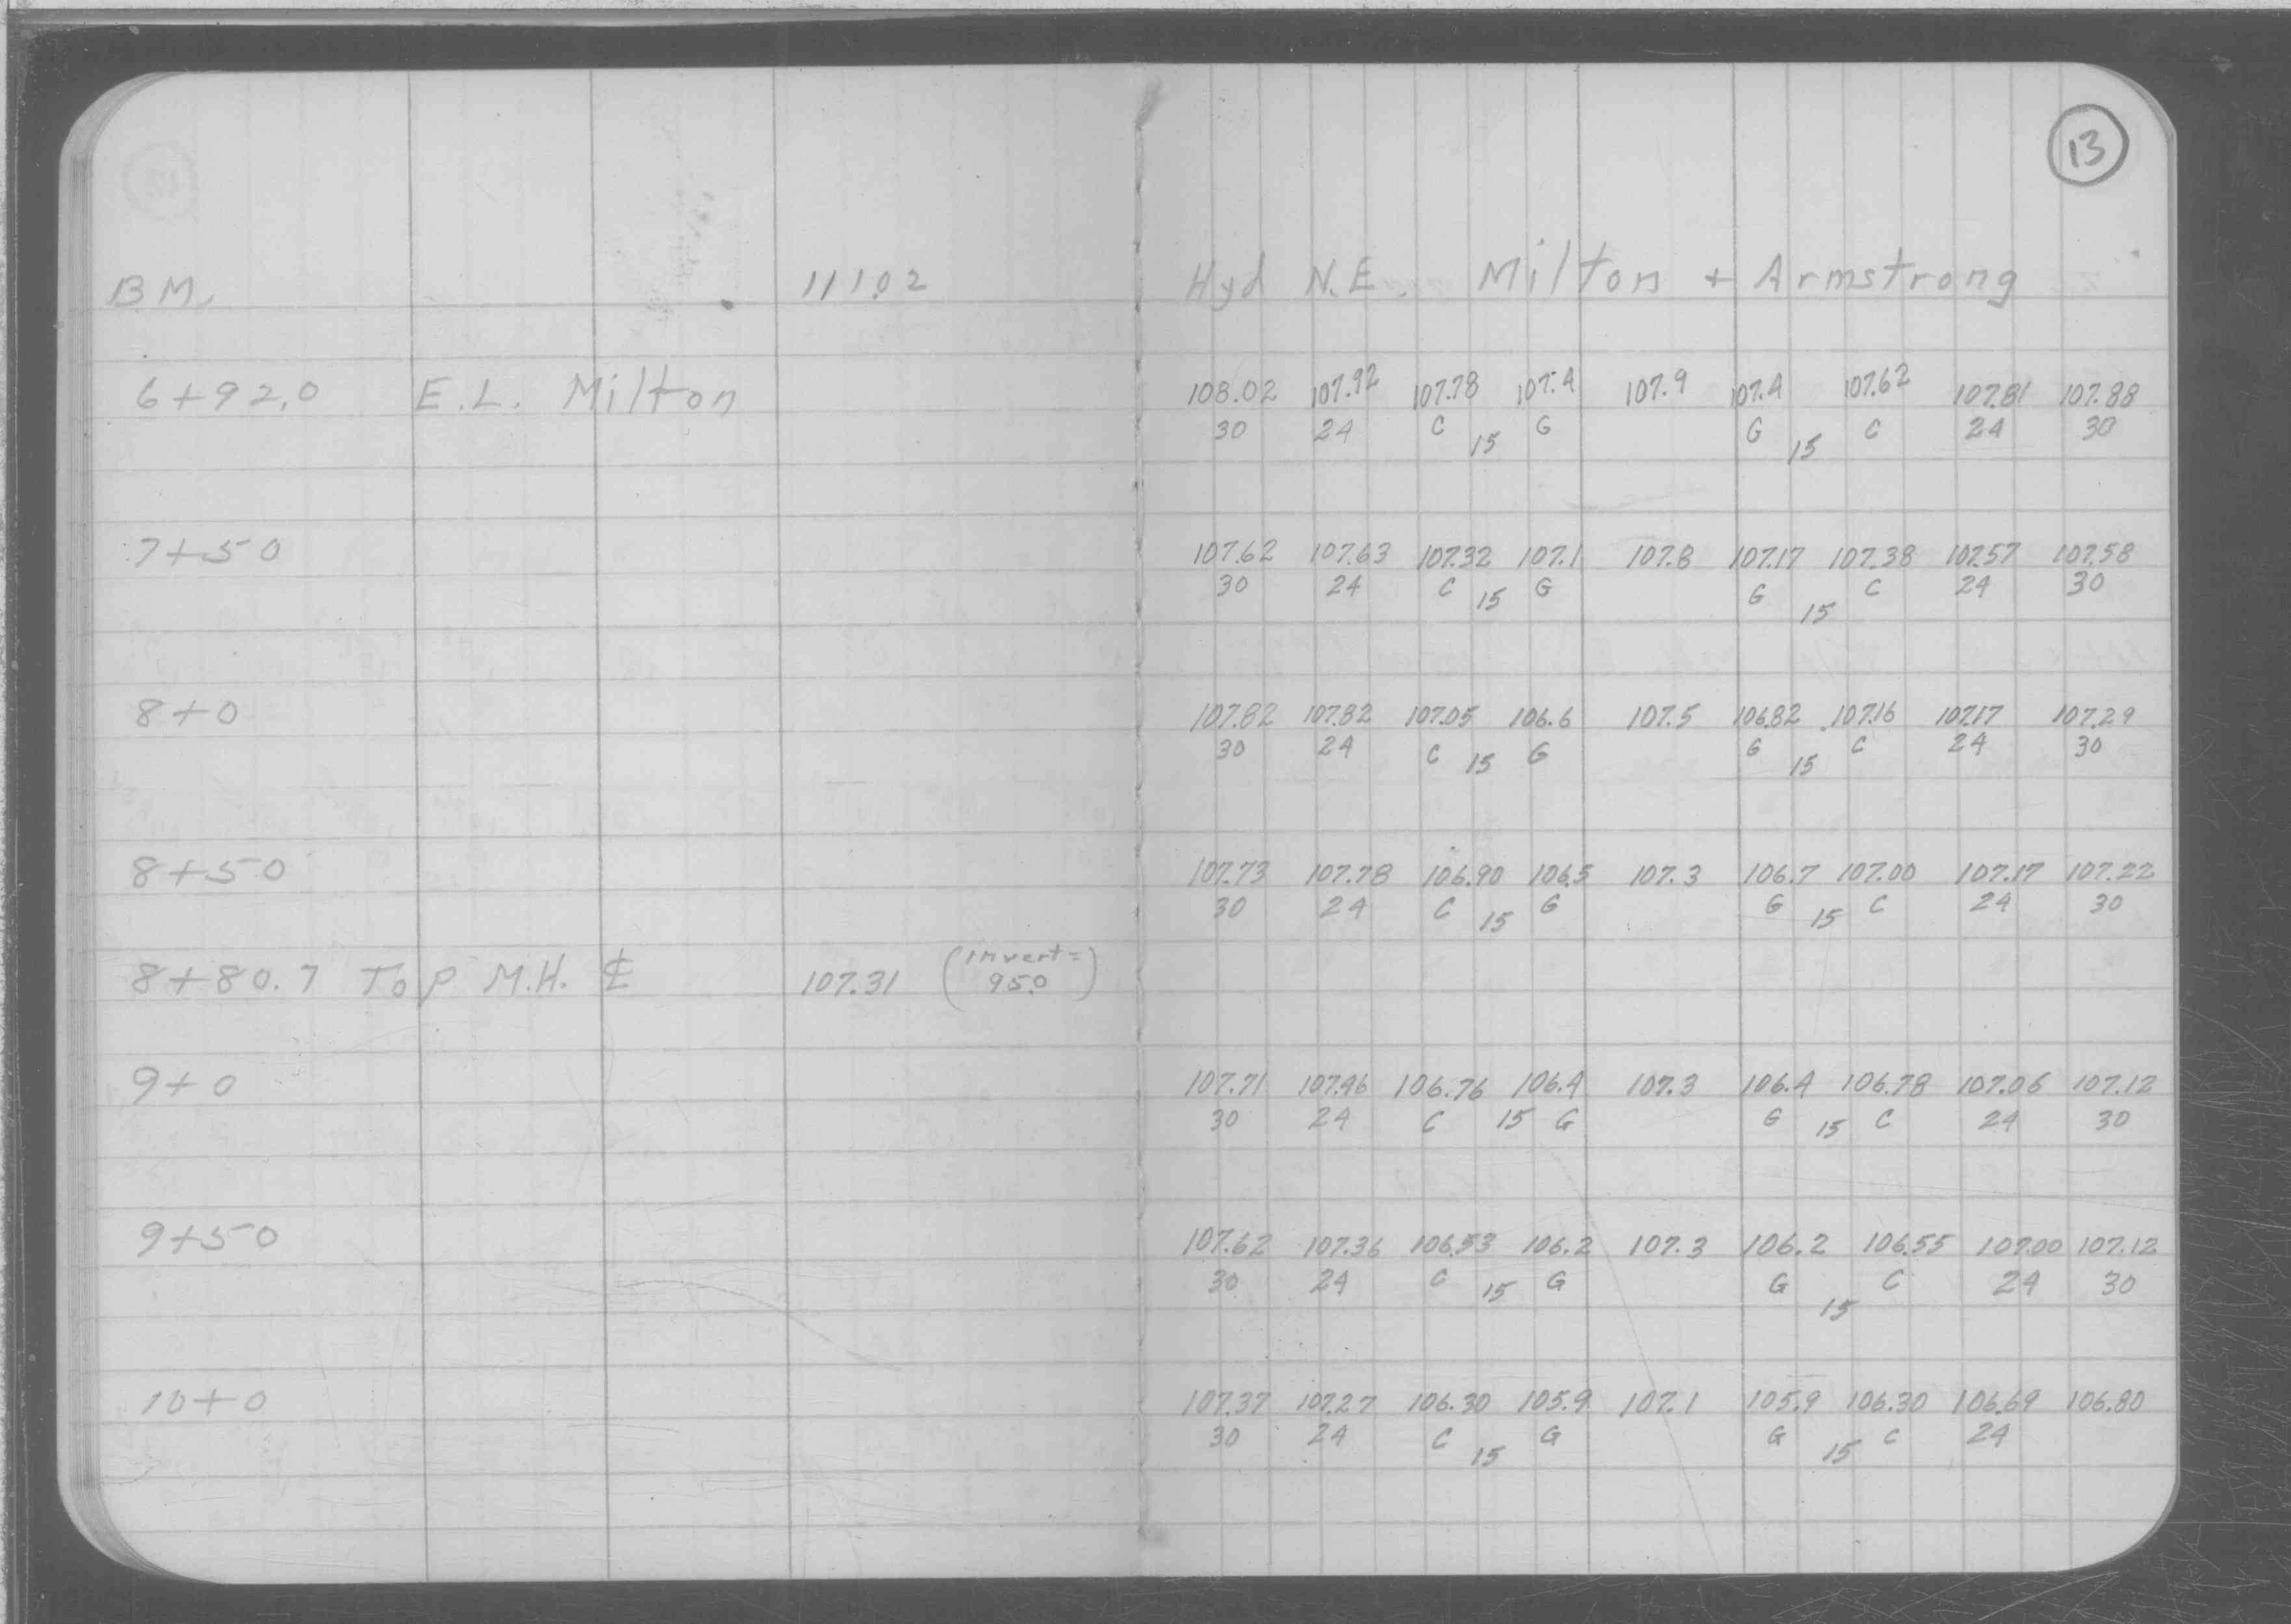 13
BM. 111.02 Hyd N.E. Milton + Armstrong
6+92.0 E.L. Milton 108.02 107.92 107.78 107.4 107.9 107.4 107.62 107.81 107.88
30 24 C 15 G G 15 C 24 30
7+50 107.62 107.63 107.32 107.1 107.8 107.17 107.38 107.57 107.58
30 24 C 15 G G 15 C 24 30
8+0 107.82 107.82 107.05 106.6 107.5 106.82 107.16 107.17 107.29
30 24 C 15 G G 15 C 24 30
8+50 107.73 107.78 106.90 106.5 107.3 106.7 107.00 107.17 107.22
30 24 C 15 G G 15 C 24 30
8+80.7 Top M.H. ℄ 107.31 (invert =
95.0)
9+0 107.71 107.46 106.76 106.4 107.3 106.4 106.78 107.06 107.12
30 24 C 15 G G 15 C 24 30
9+50 107.62 107.36 106.53 106.2 107.3 106.2 106.55 107.00 107.12
30 24 C 15 G G 15 C 24 30
10+0 107.37 107.27 106.30 105.9 107.1 105.9 106.30 106.69 106.80
30 24 C 15 G G 15 C 24